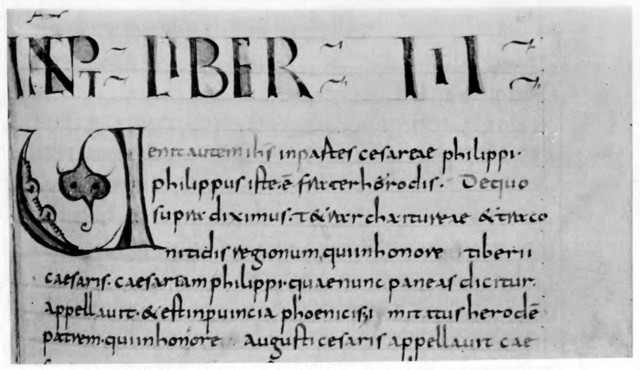 INCPT LIBER III
Uenit autem ihs inpartes cesareae philippi·
philippus iste·ē· frater herodis· Dequo
supra diximus· t&rarcha itureae &traco
nitidis regionum, quiinhonore tiberii
caesaris· caesariam philippi· quaenunc paneas dicitur·
appellauit· &estinprouincia phoenicis; imitatus herodē
patrem· quiinhonore augusti cesaris appellauit cae